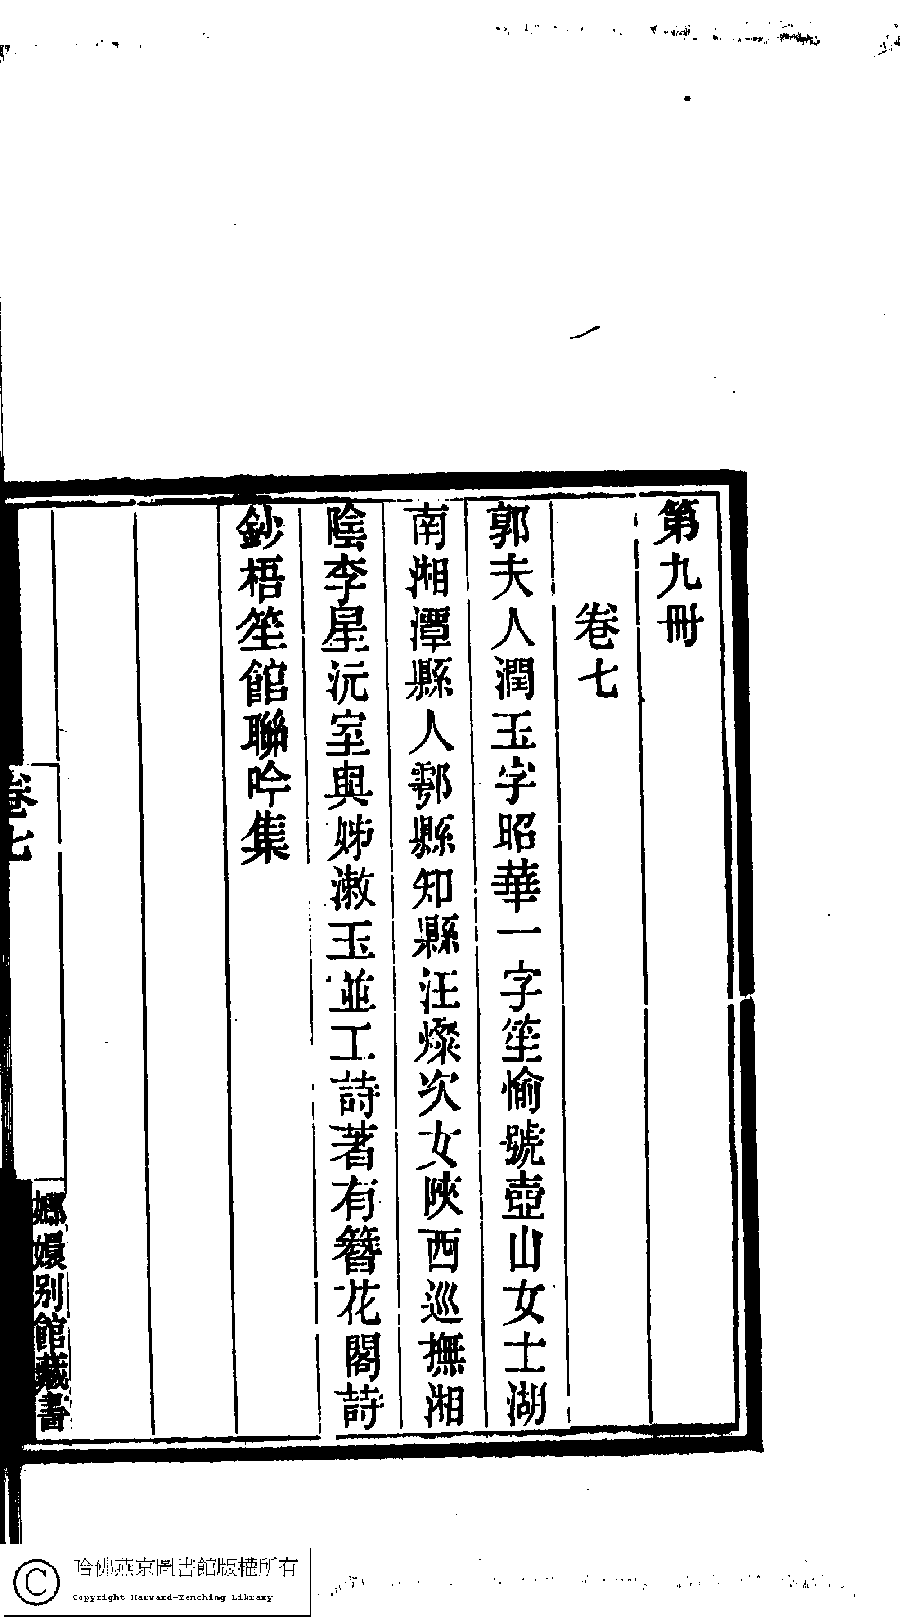 第九冊
卷七
郭夫人潤玉字昭華一字笙愉號壺山女士湖
南湘潭縣人鄠縣知縣汪燦次女陝西巡撫湘
陰李星沅室與姊漱玉並工詩著有簪花閣詩
鈔梧笙館聯吟集
卷七
嫏嬛別館藏書
哈佛燕京圖書館版權所有
Copyright Harvard-Yenching Library